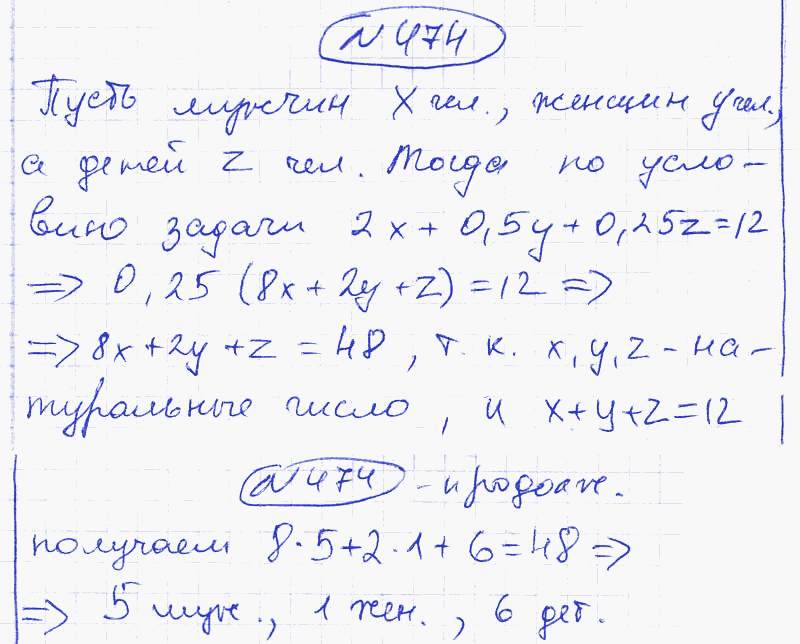 N 474
Пусть мужчин x чел., женщин y чел.,
а детей z чел. Тогда по усло-
вию задачи 2x + 0,5y + 0,25z = 12
=> 0,25 (8x + 2y + z) = 12 =>
=> 8x + 2y + z = 48, т. к. x, y, z - на-
туральные число, и x + y + z = 12
N 474 - продолж.
получаем 8·5 + 2·1 + 6 = 48 =>
=> 5 муж., 1 жен., 6 дет.